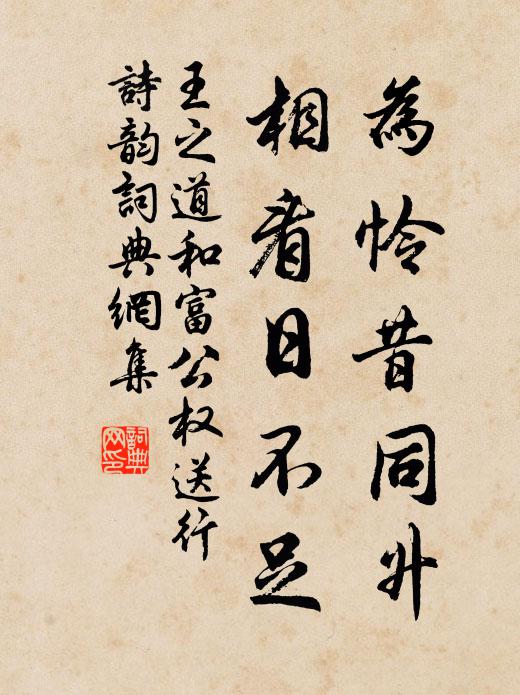 為怜昔同升
相看日不足
王之道和富公权送行
詩韵詞典網集
詞典网印